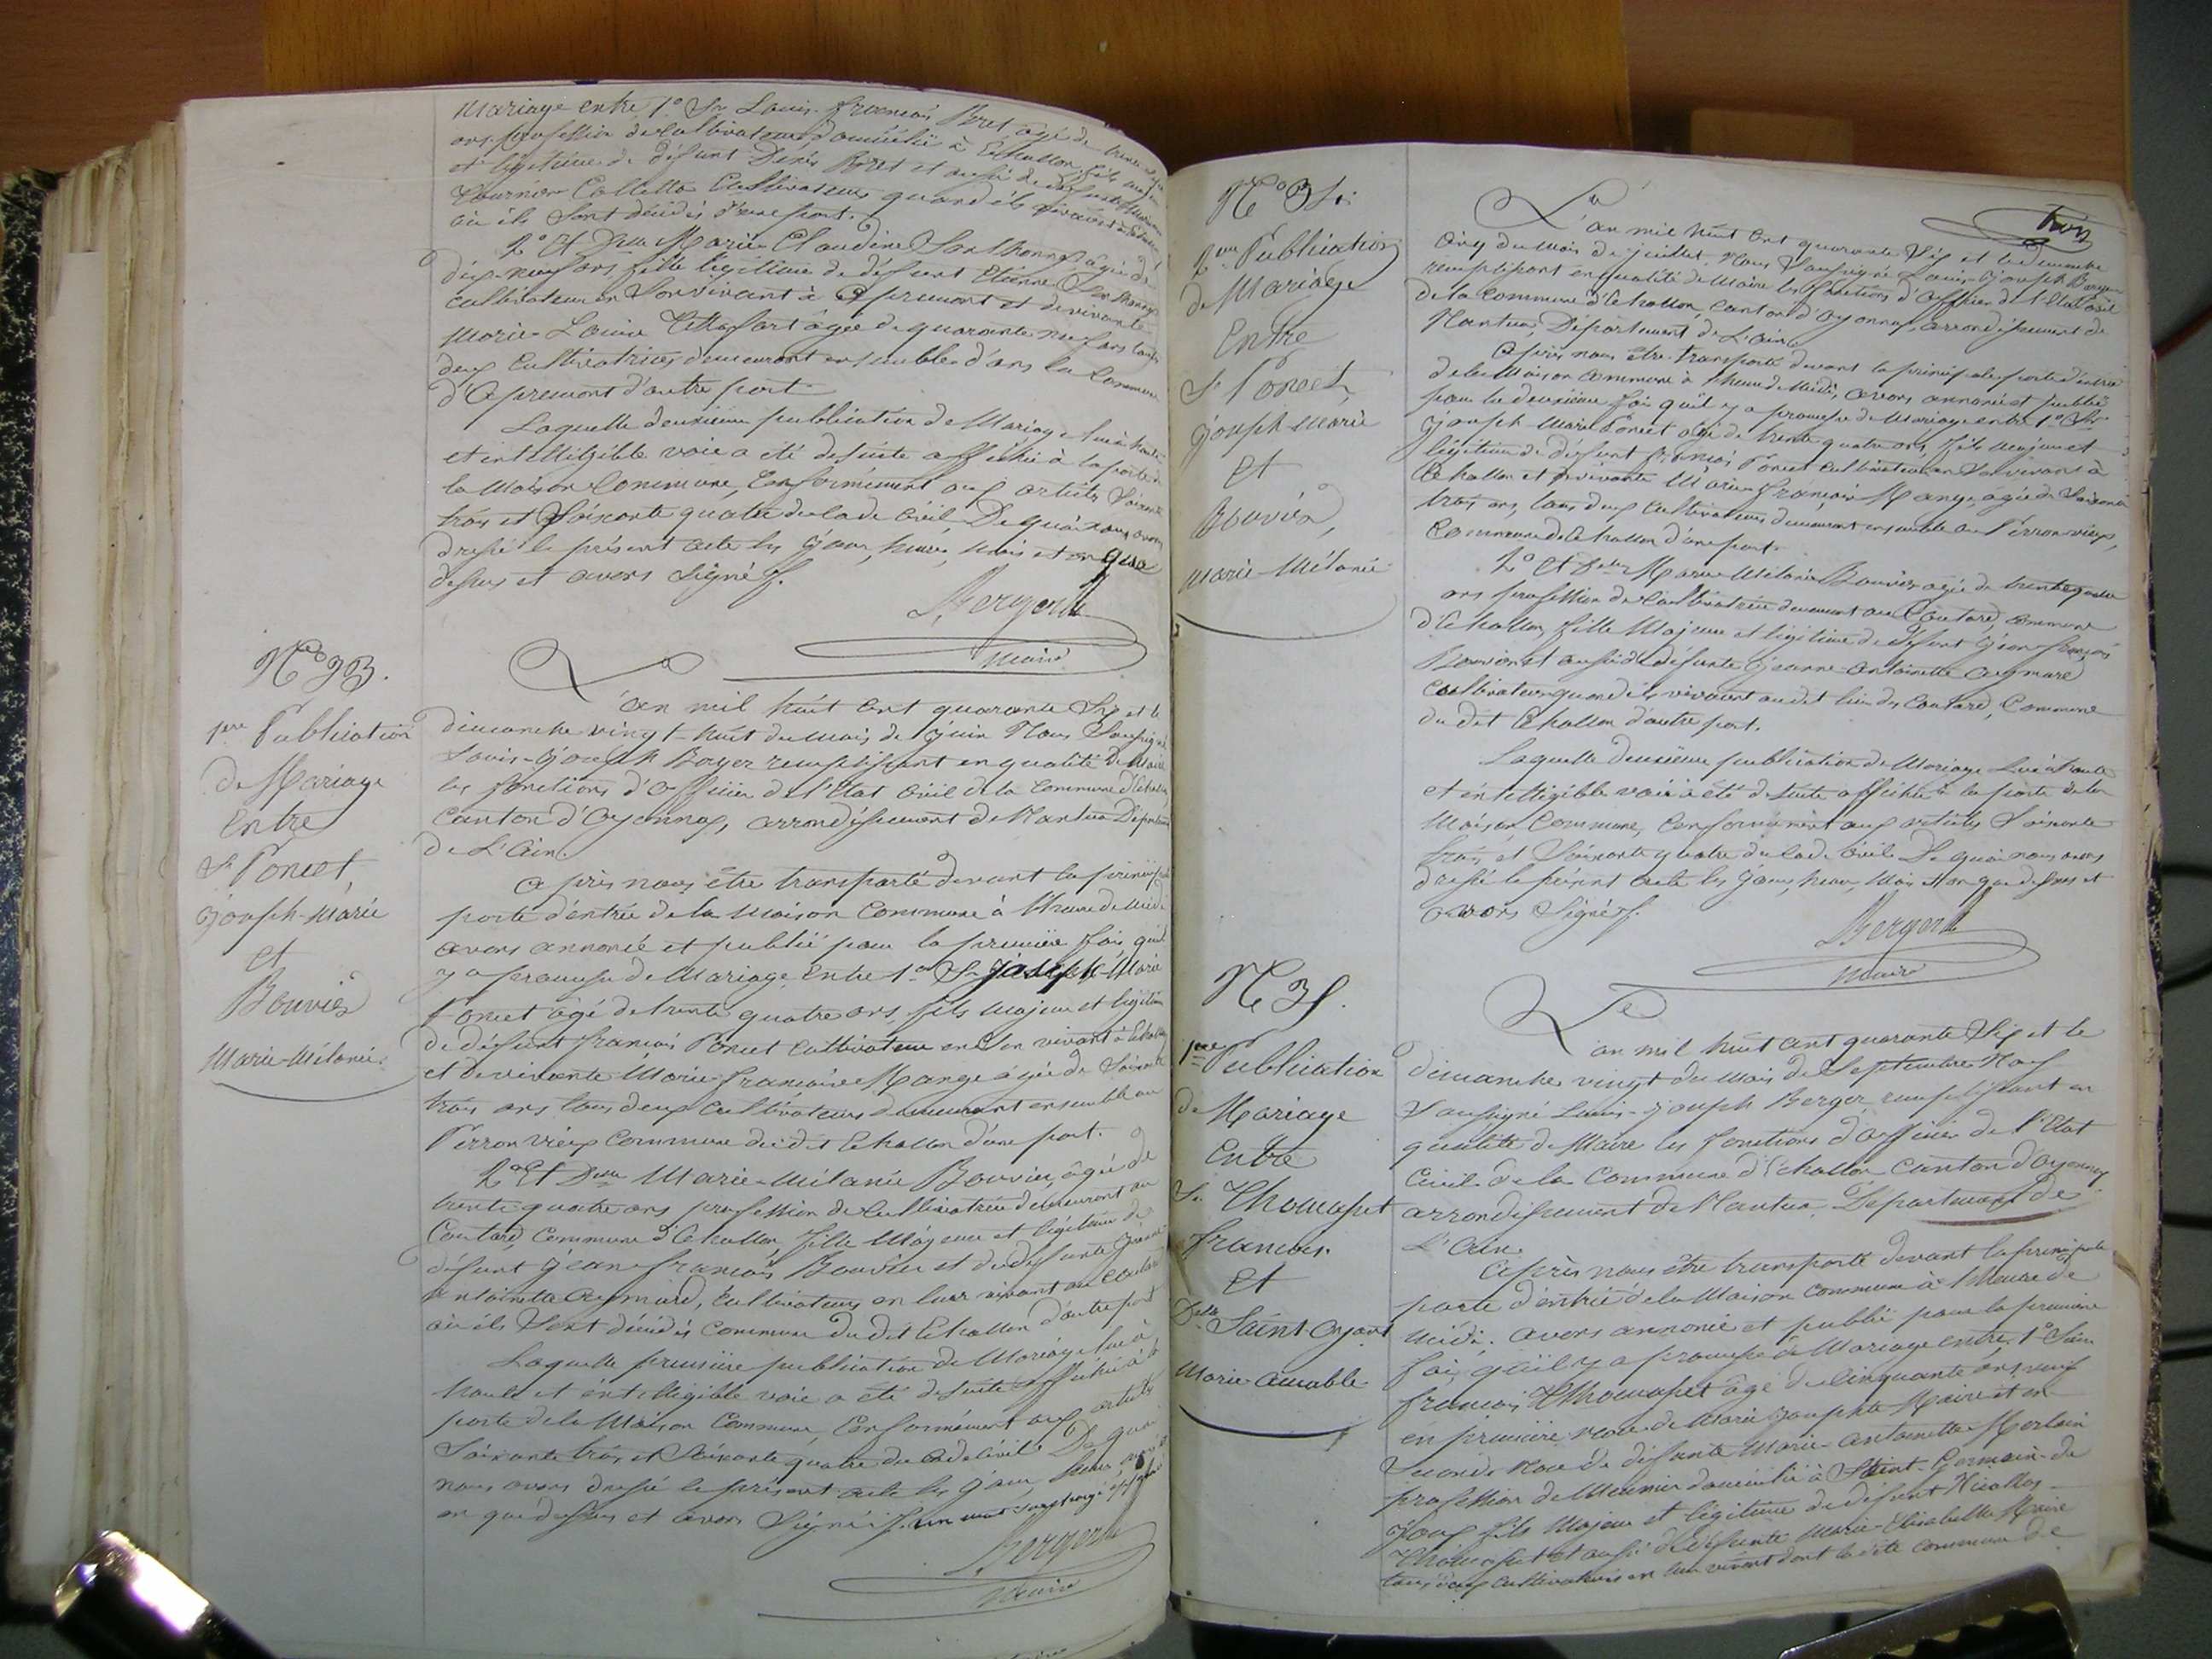 Mariage entre 1° Sr Louis françois Peret âgé de trente
ans profession de cultivateur, domicilié à Echallon, fils majeur
et légitime de défunt Denis Peret et aussi de défunte
Tournier Collette Cultivateurs quand ils vivaient
où ils sont décédés d'une part.
2° Et Dlle Marie Claudine Santhonnax âgée de
dix-neuf ans, fille légitime de défunt Etienne Santhonnax
cultivateur en Son vivant à Apremont et de vivante
Marie-Louise âgée de quarante neuf ans tous
deux Cultivatrices demeurant ensemble dans la Commune
d'Apremont d'autre part
Laquelle deuxième publication de Mariage lue à haute
et intelligible voie a été de suite affichée à la porte de
la Maison Commune, Conformément aux articles Soixante
trois et Soixante quatre du Code Civil De quoi nous avons
dressé le présent acte les jour, heure, mois et an que
dessus et avons Signé
Berger L
Maire
N° 33.
1ere Publication
de Mariage
Entre
Sr Poncet,
joseph-Marie
et
Bouvier
Marie-Mélanie.
L'an mil huit cent quarante Six et le
dimanche vingt-huit du mois de juin Nous Soussigné
Louis-Joseph Berger remplissant en qualité de Maire
les fonctions d'officier de l'Etat Civil de la Commune d'Echallon,
Canton d'Oyonnax, arrondissement de Nantua Département
de L'Ain.
Après nous être transporté devant la principale
porte d'entrée de la Maison Commune à l'heure de Midi
avons annoncé et publié pour la première fois qu'il
y a promesse de Mariage entre 1° Sr joseph-Marie
Poncet âgé de trente quatre ans, fils majeur et légitime
de défunt françois Poncet cultivateur en Son vivant à Echallon
et de vivante Marie-françoise Mange âgée de Soixante
trois ans, tous deux Cultivateurs demeurant ensemble au
Perron vieux Commune du dit Echallon d'une part.
2° Et Dlle Marie-Mélanie Bouvier, âgée de
trente quatre ans profession de Cultivatrice demeurant au
Coutard, Commune d'Echallon, fille Majeure et légitime de
défunt jean-françois Bouvier et de défunte jeanne
antoinette Aymard, Cultivateurs en leur vivant au Coutard
où ils Sont décédés Commune du dit Echallon d'autre part
Laquelle première publication de Mariage lue à
haute et intelligible voie a été de suite affichée à la
porte de la Maison Commune, Conformément aux articles
Soixante trois et Soixante quatre du Code Civil De quoi
nous avons dressé le présent acte les jour, heure, mois et
an que dessus et avons Signé. un mot surchargé approuvé
Berger L
Maire
N° 34.
2eme Publication
de Mariage
Entre
Sr Poncet,
joseph-marie
et
Bouvier,
Marie-Mélanie
trois
L'an mil huit cent quarante Six et le dimanche
cinq du mois de juillet, Nous Soussigné Louis-joseph Berger
remplissant en qualité de Maire les fonctions d'officier de l'Etat Civil
de la Commune d'Echallon, canton d'Oyonnax, arrondissement de
Nantua, Département de L'Ain.
Après nous être transporté devant la principale porte d'entrée
de la Maison Commune à l'heure de Midi, avons annoncé et publié
pour la deuxième fois qu'il y a promesse de Mariage entre 1° Sr
joseph Marie Poncet âgé de trente quatre ans, fils majeur et
légitime de défunt françois Poncet Cultivateur en Son vivant à
Echallon et de vivante Marie-françoise Mange, âgée de Soixante
trois ans, tous deux Cultivateurs demeurant ensemble au Perron vieux,
Commune d'Echallon d'une part.
2° Et Dlle Marie-Mélanie Bouvier âgée de trente quatre
ans profession de Cultivatrice demeurant au Coutard, Commune
d'Echallon, fille Majeure et légitime de défunt jean-françois
Bouvier et aussi de défunte jeanne-antoinette Aymard
Cultivateurs quand ils vivaient au dit lieu du Coutard, Commune
du dit Echallon d'autre part.
Laquelle deuxième publication de Mariage Lue à haute
et intelligible voie à été de suite affichée à la porte de la
Maison Commune, Conformément aux articles Soixante
trois et Soixante quatre du Code Civil De quoi nous avons
dressé le présent acte les jour, heure, Mois et an que dessus et
avons Signé
Berger L
Maire
N° 35.
1ere Publication
de Mariage
Entre
Sr Thomasset
françois.
Et
Dlle Saint Oyant
Marie-Aimable
L'an mil huit cent quarante Six et le
dimanche vingt du Mois de Septembre Nous
Soussigné Louis-joseph Berger, remplissant en
qualité de Maire les fonctions d'officier de l'Etat
Civil de la Commune d'Echallon Canton d'Oyonnax
arrondissement de Nantua, Département de
L'Ain.
Après nous être transporté devant la principale
porte d'entrée de la Maison Commune à l'heure de
midi, avons annoncé et publié pour la première
fois qu'il y a promesse de Mariage entre 1° Sieur
françois Thomasset âgé de Cinquante ans, veuf
en première noce de Marie josephte Maire et en
Seconde Noce de défunte Marie-Antoinette Merlain
profession de Meunier domicilié à Saint-Germain-de
joux fils Majeur et légitime de défunt Nicollas
Thomasset et aussi de défunte Marie-Elisabelle Maire
tous deux cultivateurs en leur vivant dans la dite Commune de